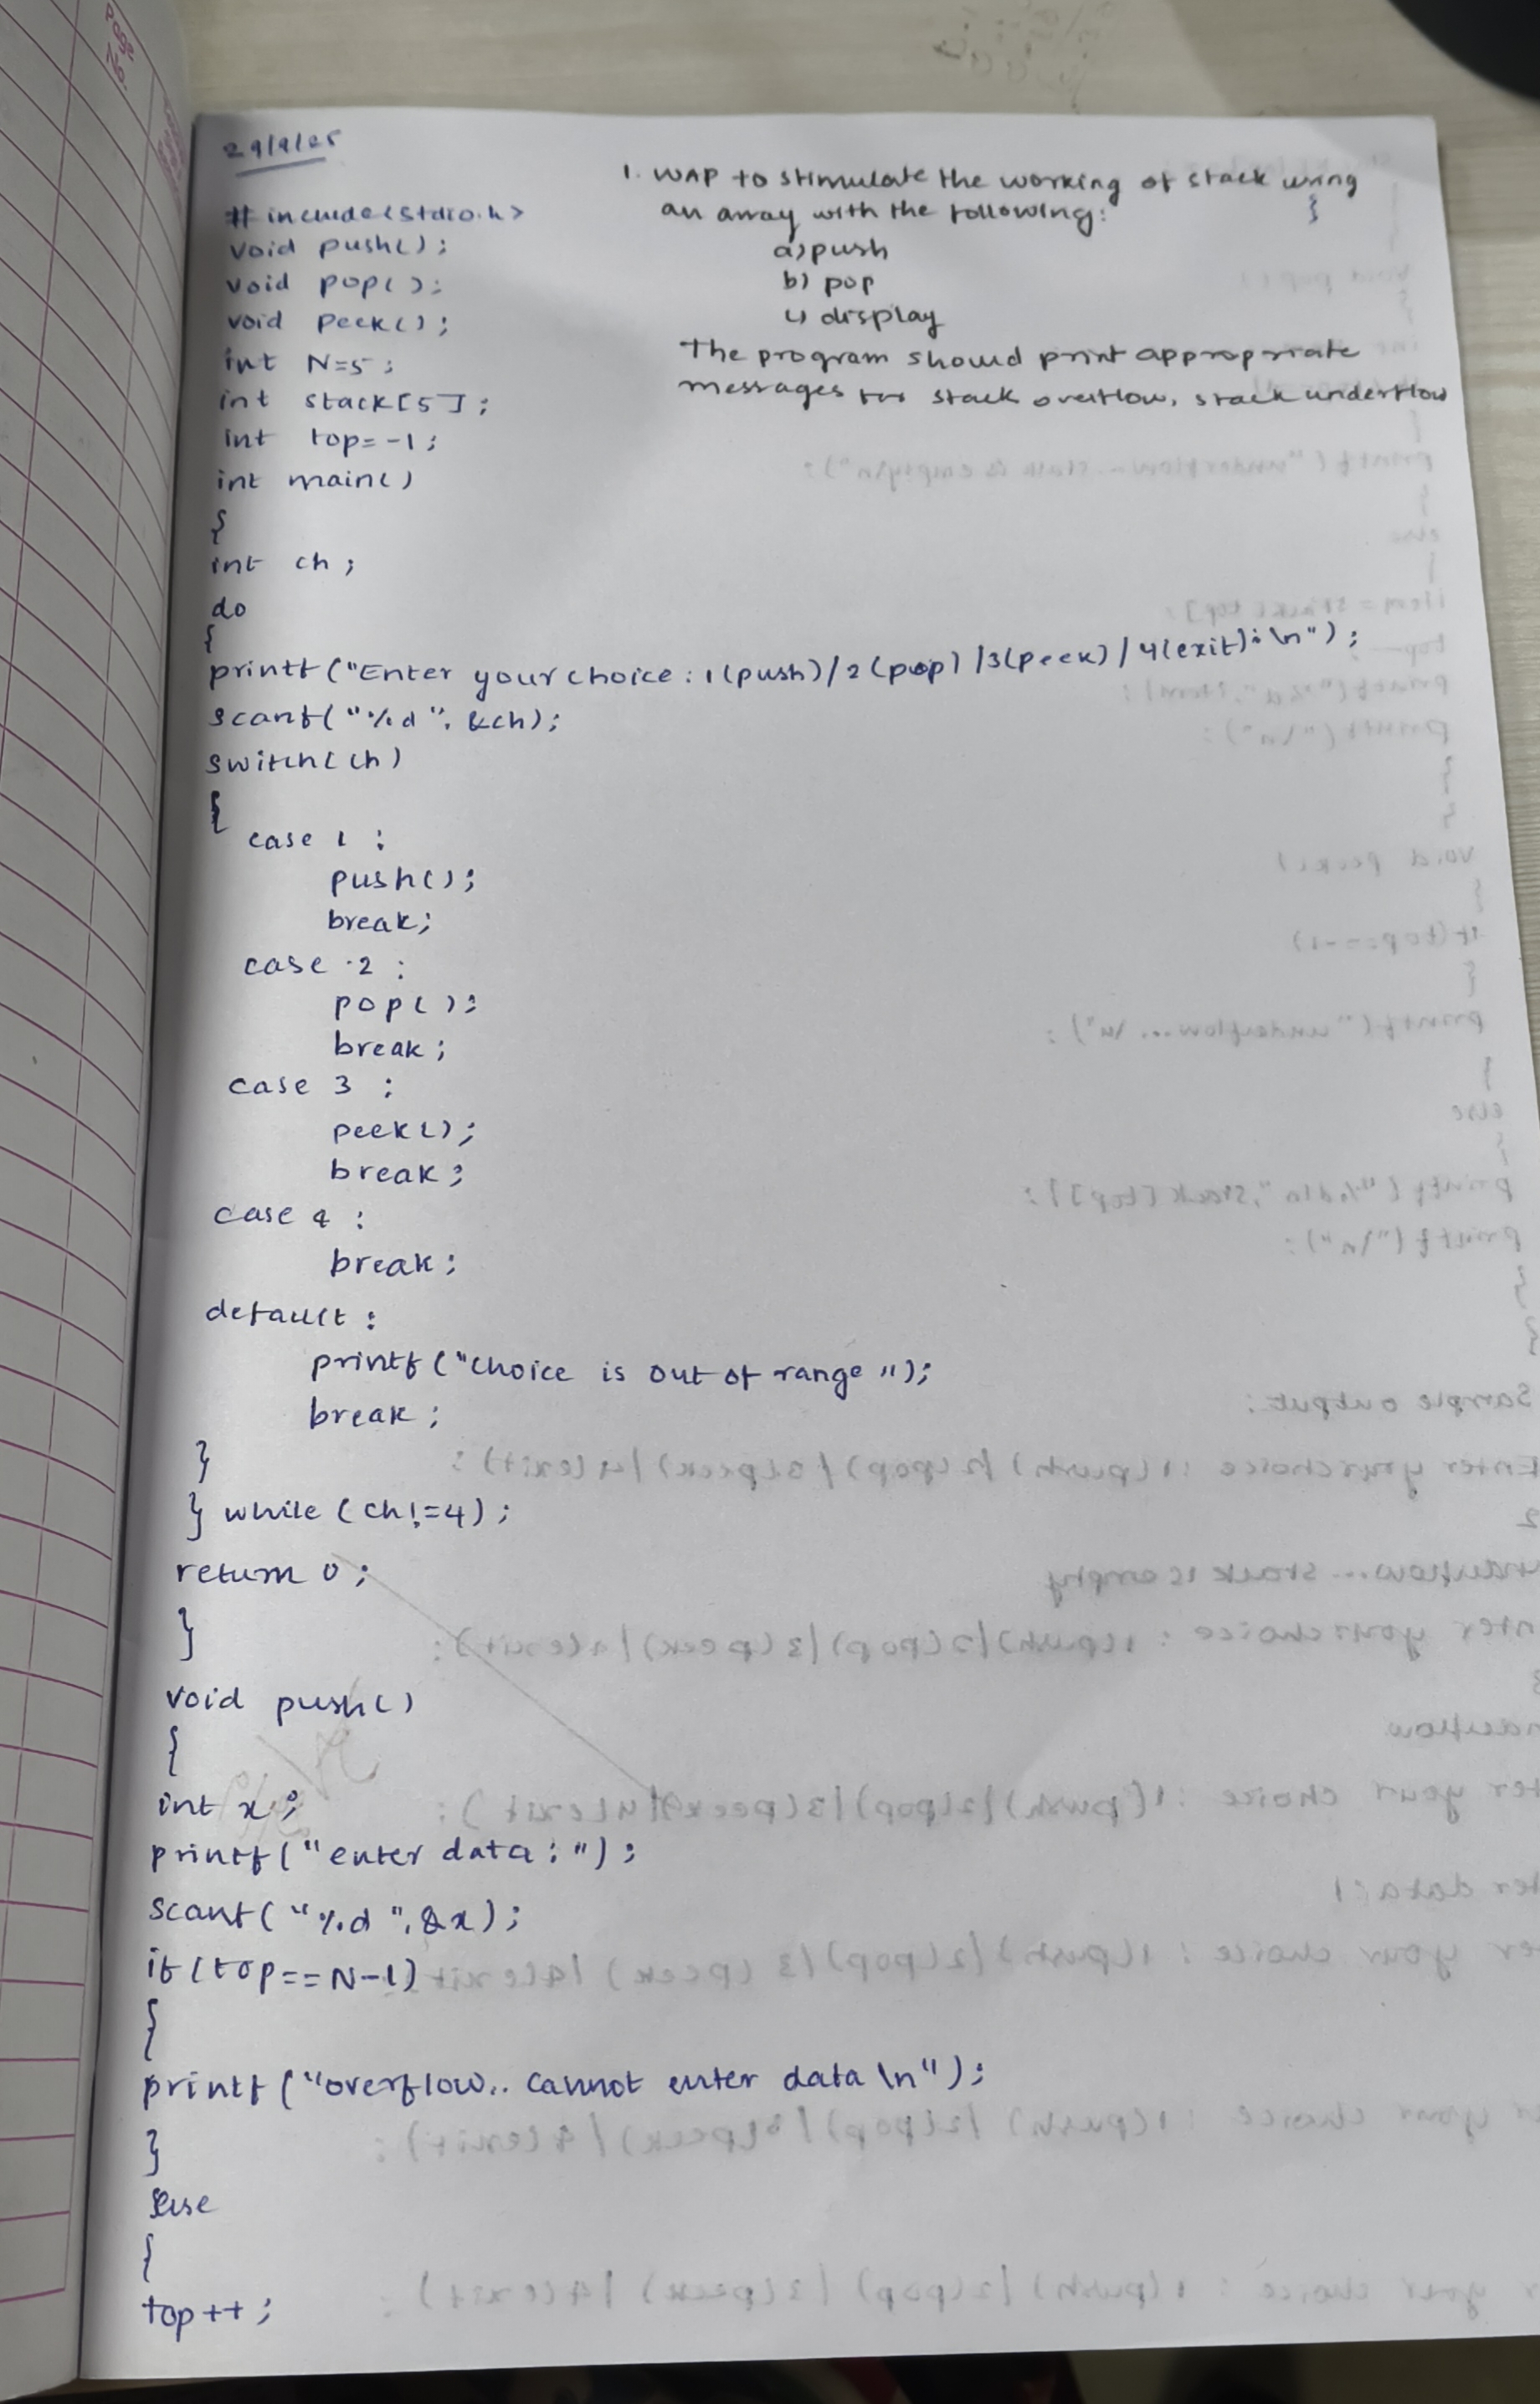 29/9/25
1. WAP to stimulate the working of stack using
an array with the following:
a) push
b) pop
c) display
The program should print appropriate
messages for stack overflow, stack underflow
# include<stdio.h>
void push();
void pop();
void peek();
int N=5;
int stack[5];
int top=-1;
int main()
{
int ch;
do
{
printf("Enter your choice: 1(push)/2(pop)/3(peek)/4(exit):\n");
scanf("%d", &ch);
switch(ch)
{
case 1 :
push();
break;
case 2 :
pop();
break;
case 3 :
peek();
break;
case 4 :
break;
default :
printf("choice is out of range");
break;
}
} while (ch!=4);
return 0;
}
void push()
{
int x;
printf("enter data:");
scanf("%d", &x);
if(top==N-1)
{
printf("overflow.. cannot enter data\n");
}
else
{
top++;